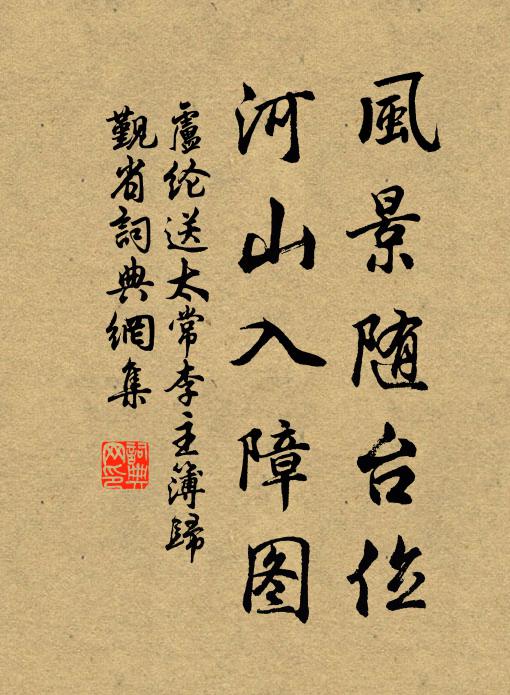 風景随台位
河山入障图
盧纶送太常李主簿歸
覲省詞典網集
詞典
网印